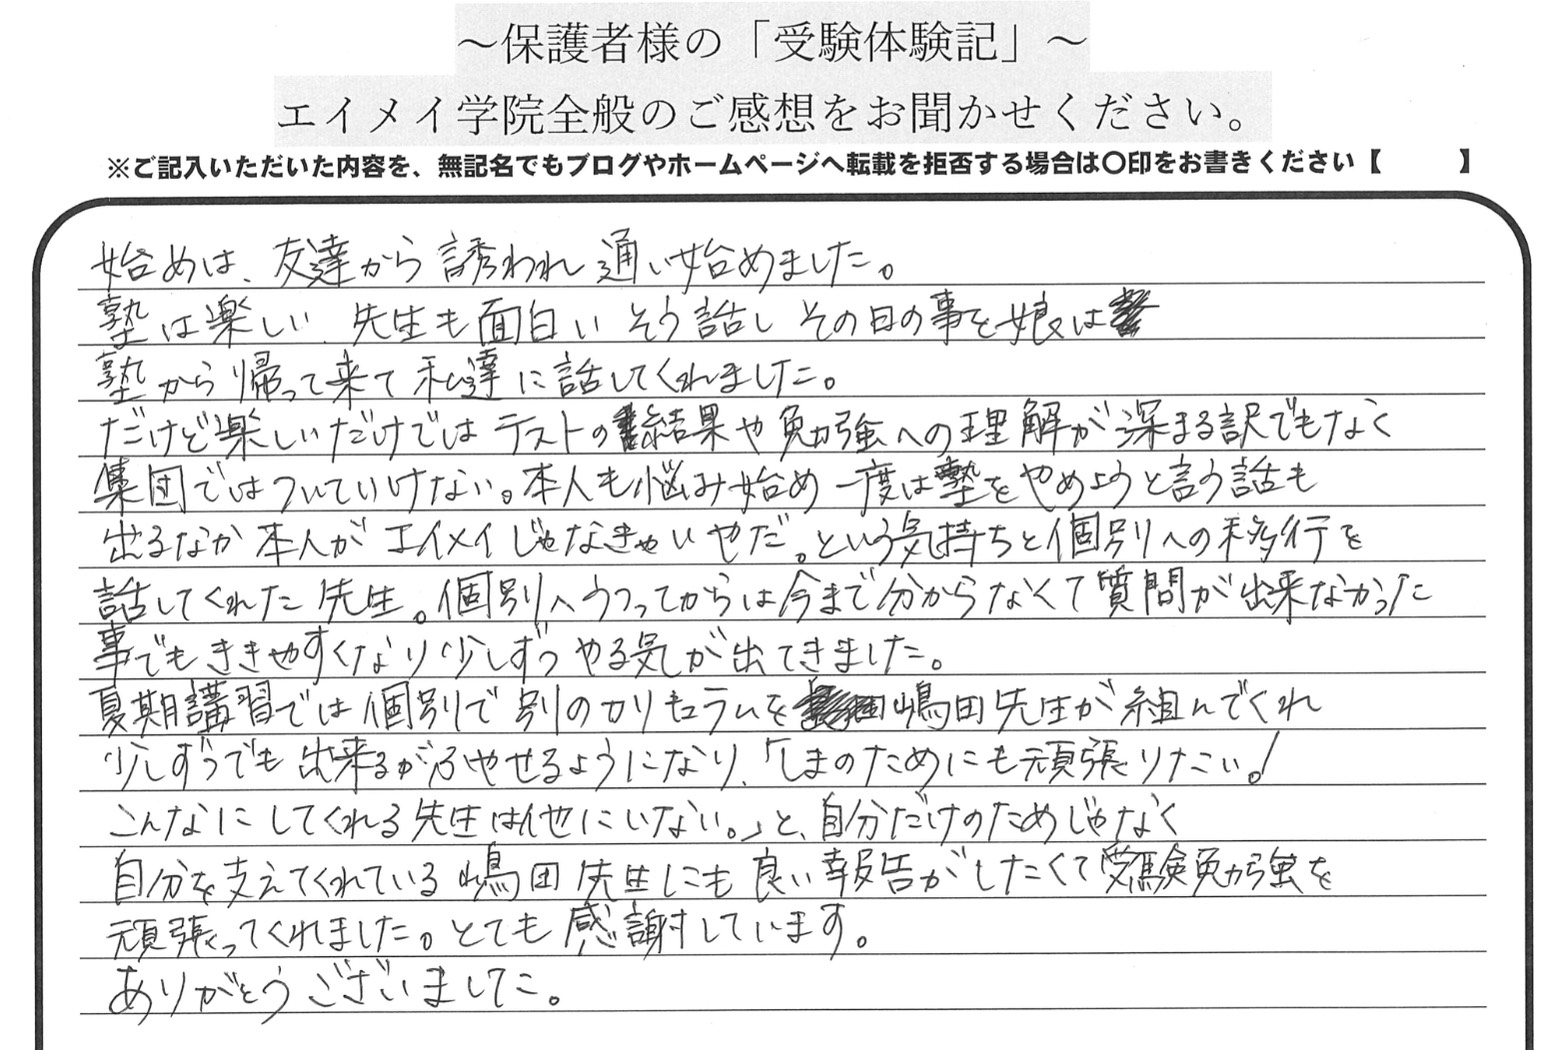 ～保護者様の「受験体験記」～
エイメイ学院全般のご感想をお聞かせください。
※ご記入いただいた内容を、無記名でもブログやホームページへ転載を拒否する場合は〇印をお書きください【　　】
始めは、友達から誘われ通い始めました。
塾は楽しい、先生も面白い そう話し その日の事を娘は
塾から帰って来て私達に話してくれました。
だけど楽しいだけではテストの結果や勉強への理解が深まる訳でもなく
集団ではついていけない。本人も悩み始め一度は塾をやめようと言う話も
出るなか本人がエイメイじゃなきゃいやだ。という気持ちと個別への移行を
話してくれた先生。個別へうつってからは今まで分からなくて質問が出来なかった
事でもききやすくなり少しずつやる気が出てきました。
夏期講習では個別で別のカリキュラムを嶋田先生が組んでくれ
少しずつでも出来るがふやせるようになり、「しまのためにも頑張りたい！
こんなにしてくれる先生は他にいない。」と、自分だけのためじゃなく
自分を支えてくれている嶋田先生にも良い報告がしたくて受験勉強を
頑張ってくれました。とても感謝しています。
ありがとうございました。